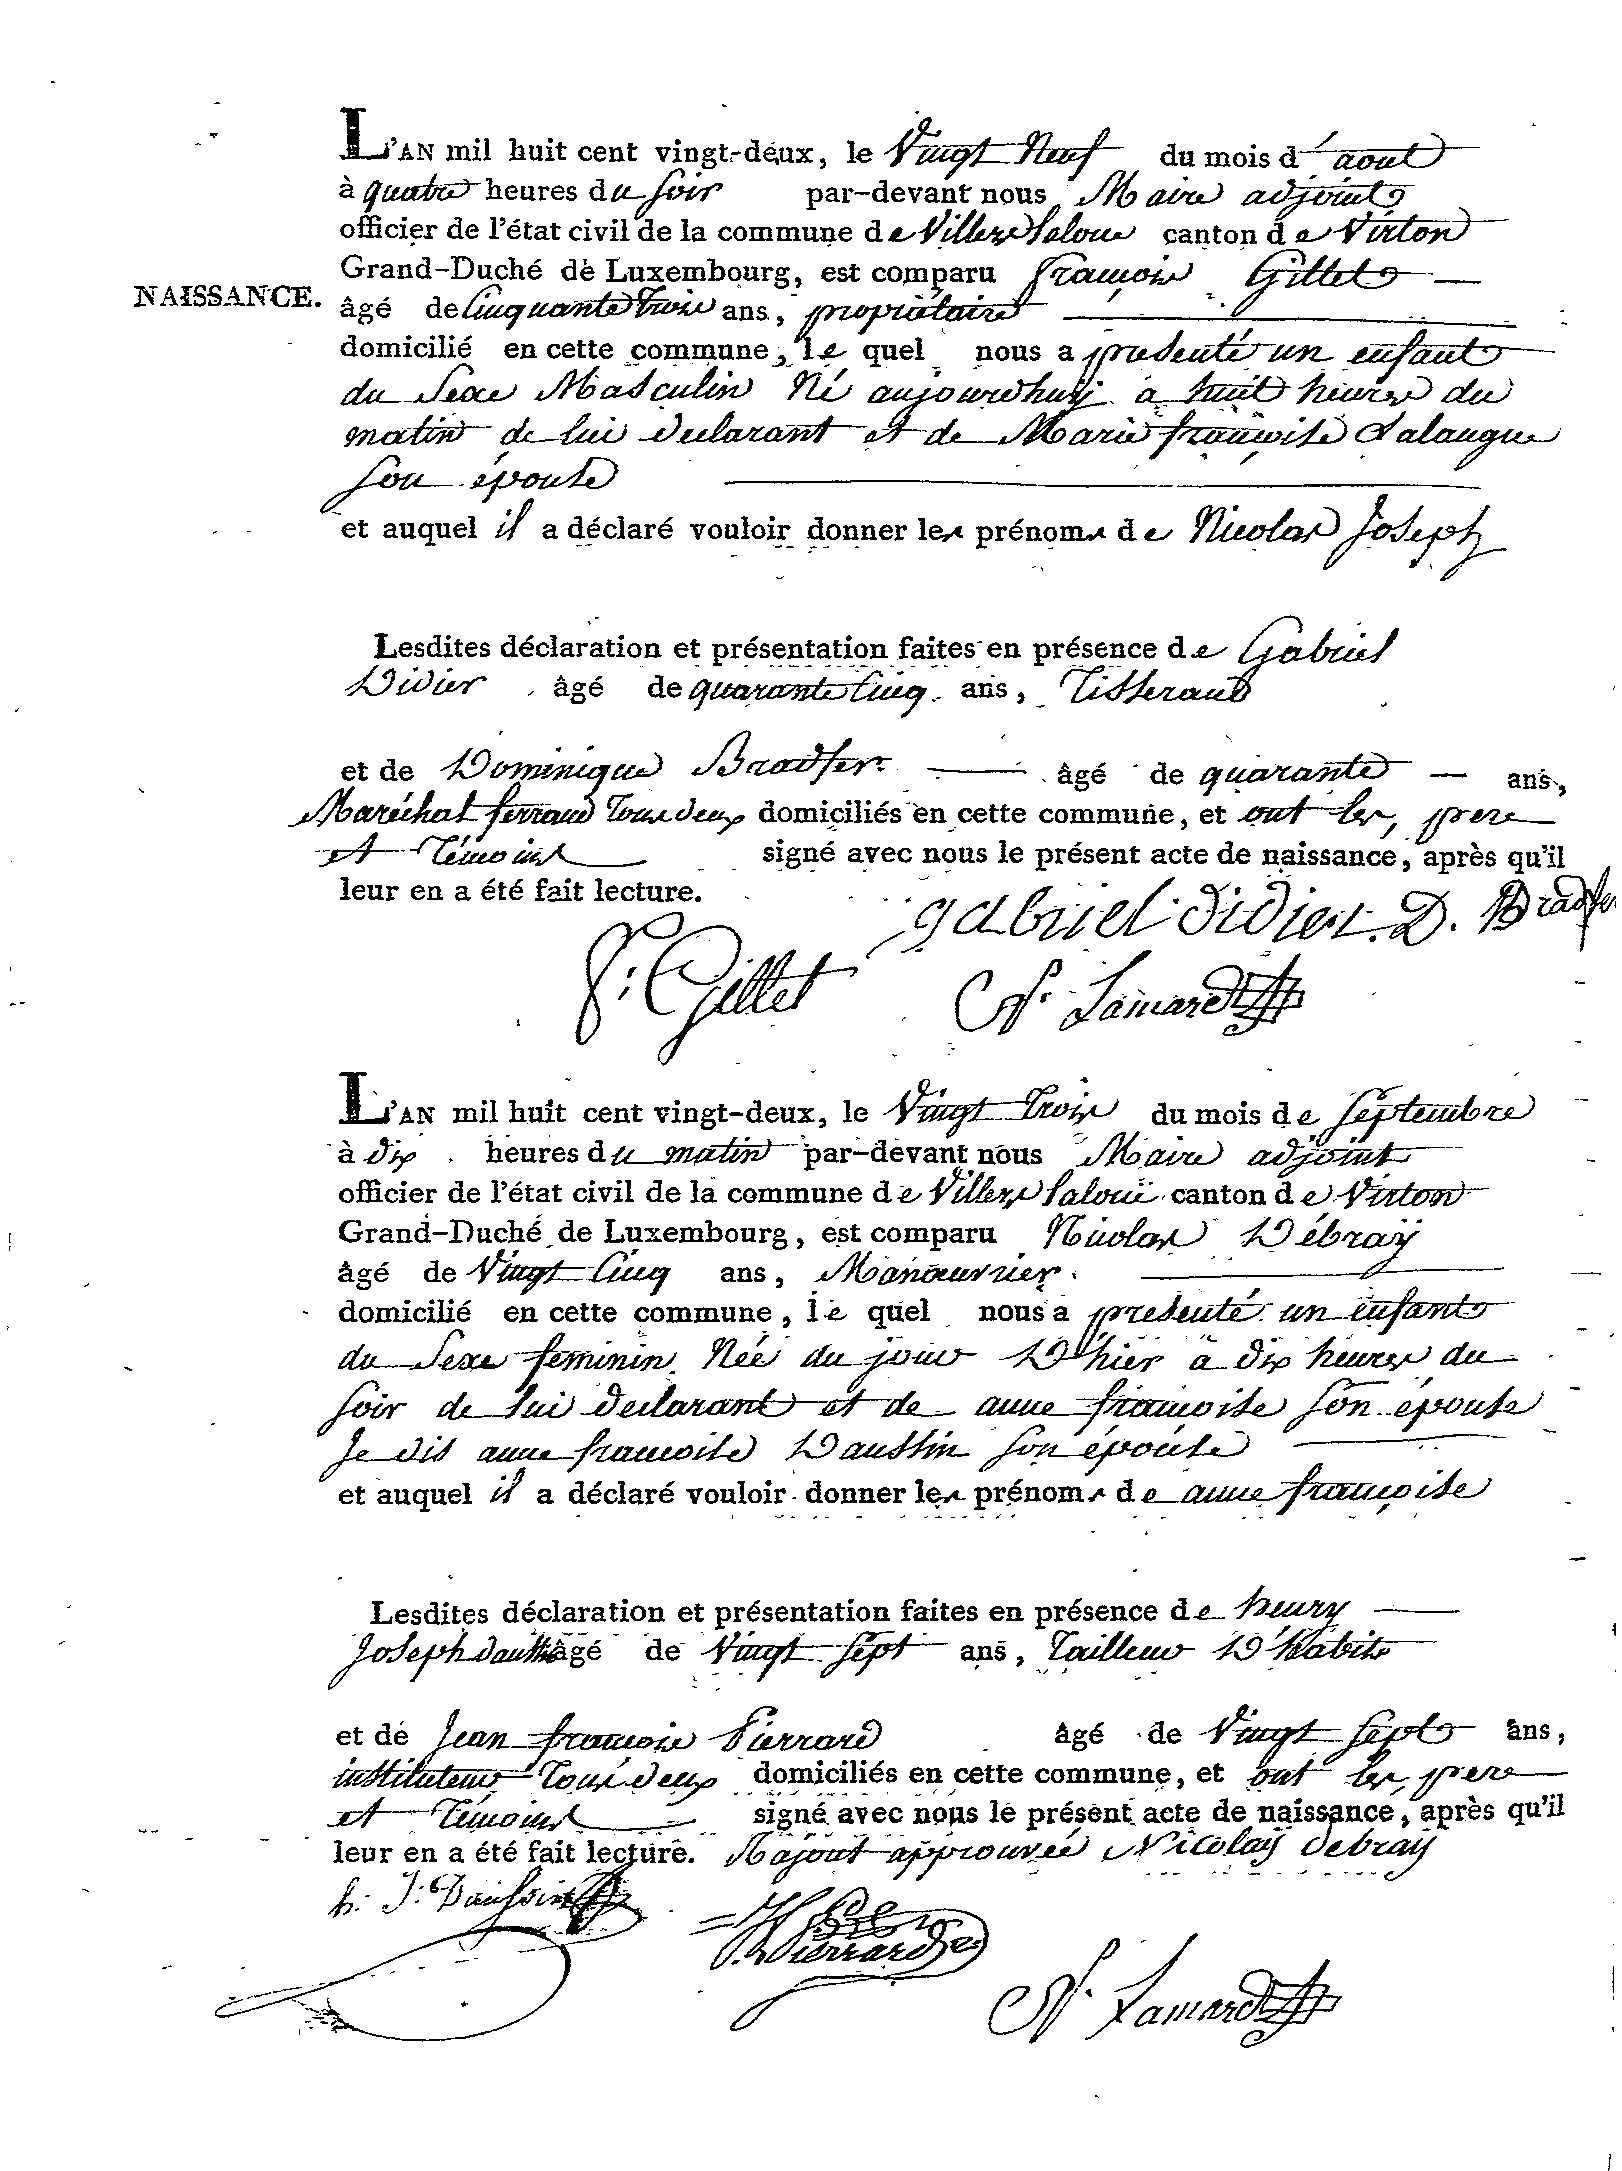 L'AN mil huit cent vingt-deux, le Vingt Neuf du mois d'aout
à quatre heures du soir par-devant nous Maire adjoint
officier de l'état civil de la commune de Villers Laloue canton de Virton
Grand-Duché de Luxembourg, est comparu françois Gillet
NAISSANCE.
âgé de Cinquante trois ans, propriétaire
domicilié en cette commune, le quel nous a presenté un enfant
du Sexe Masculin Né aujourdhuij a huit heures du
matin de lui declarant et de Marie françoise Lalangue
son épouse
et auquel il a déclaré vouloir donner les prénoms de Nicolas Joseph
Lesdites déclaration et présentation faites en présence de Gabriel
Didier âgé de quarante Cinq ans, Tisserand
et de Dominique Bradfer âgé de quarante ans,
Maréchal ferrand Tous deux domiciliés en cette commune, et ont les pere
et Témoins signé avec nous le présent acte de naissance, après qu'il
leur en a été fait lecture.
gabriel didier. D. Bradfer
f: Gillet N. Lamard
L'AN mil huit cent vingt-deux, le Vingt Trois du mois de Septembre
à dix heures du matin par-devant nous Maire adjoint
officier de l'état civil de la commune de Villers Laloue canton de Virton
Grand-Duché de Luxembourg, est comparu Nicolas Débraÿ
âgé de Vingt Cinq ans, Manœuvrier.
domicilié en cette commune, le quel nous a presenté un enfant
du Sexe feminin Née du jour D'hier a dix heures du
soir de lui declarant et de anne françoise son épouse
Je dis anne francoise Daussin son épouse
et auquel il a déclaré vouloir donner les prénoms de anne françoise
Lesdites déclaration et présentation faites en présence de henry
Joseph daussin âgé de Vingt Sept ans, Tailleur D'habits
et de Jean francois Pierrard âgé de Vingt Sept ans,
instituteur Tous deux domiciliés en cette commune, et ont les pere
et Témoins signé avec nous le présent acte de naissance, après qu'il
leur en a été fait lecture. Rajout approuvée Nicolas debray
h: J: Daussin
Pierrard
N. Lamard